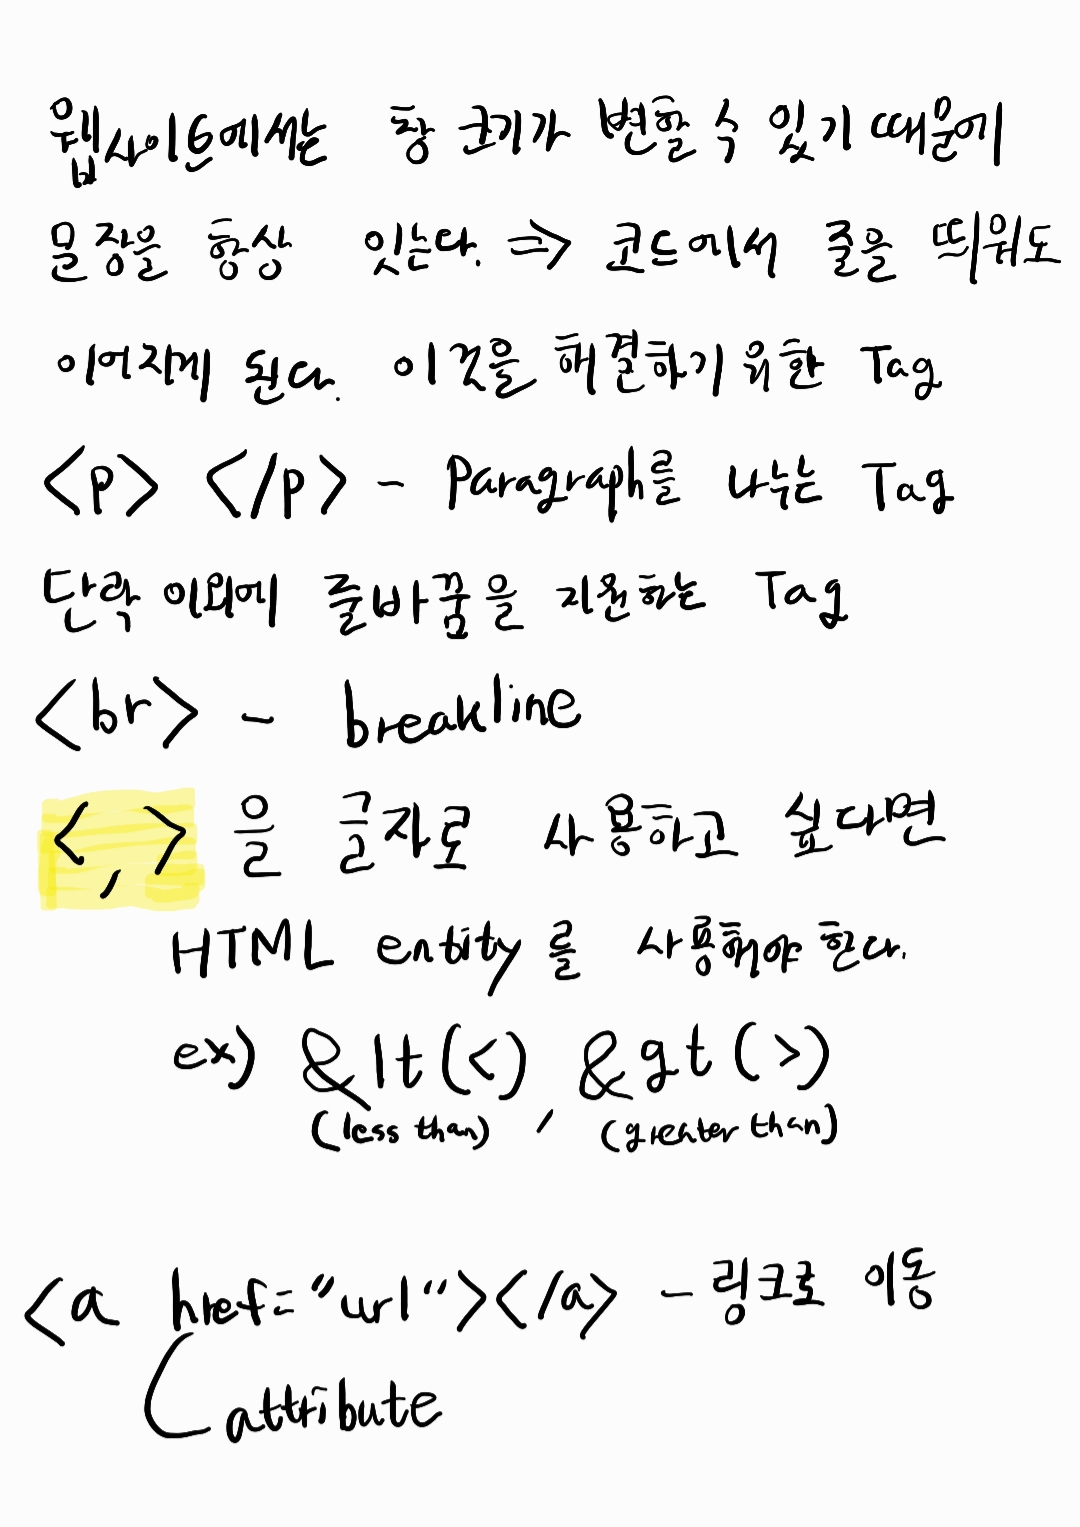 웹사이트에서는 창 크기가 변할 수 있기 때문에
문장을 항상 잇는다. ⇒ 코드에서 줄을 띄워도
이어지게 된다. 이것을 해결하기 위한 Tag
<p> </p> - Paragraph를 나누는 Tag
단락 이외에 줄바꿈을 지원하는 Tag
<br> - breakline
<, > 을 글자로 사용하고 싶다면
HTML entity를 사용해야 한다.
ex) &lt(<) , &gt(>)
(less than) (greater than)
<a href="url"></a> - 링크로 이동
attribute